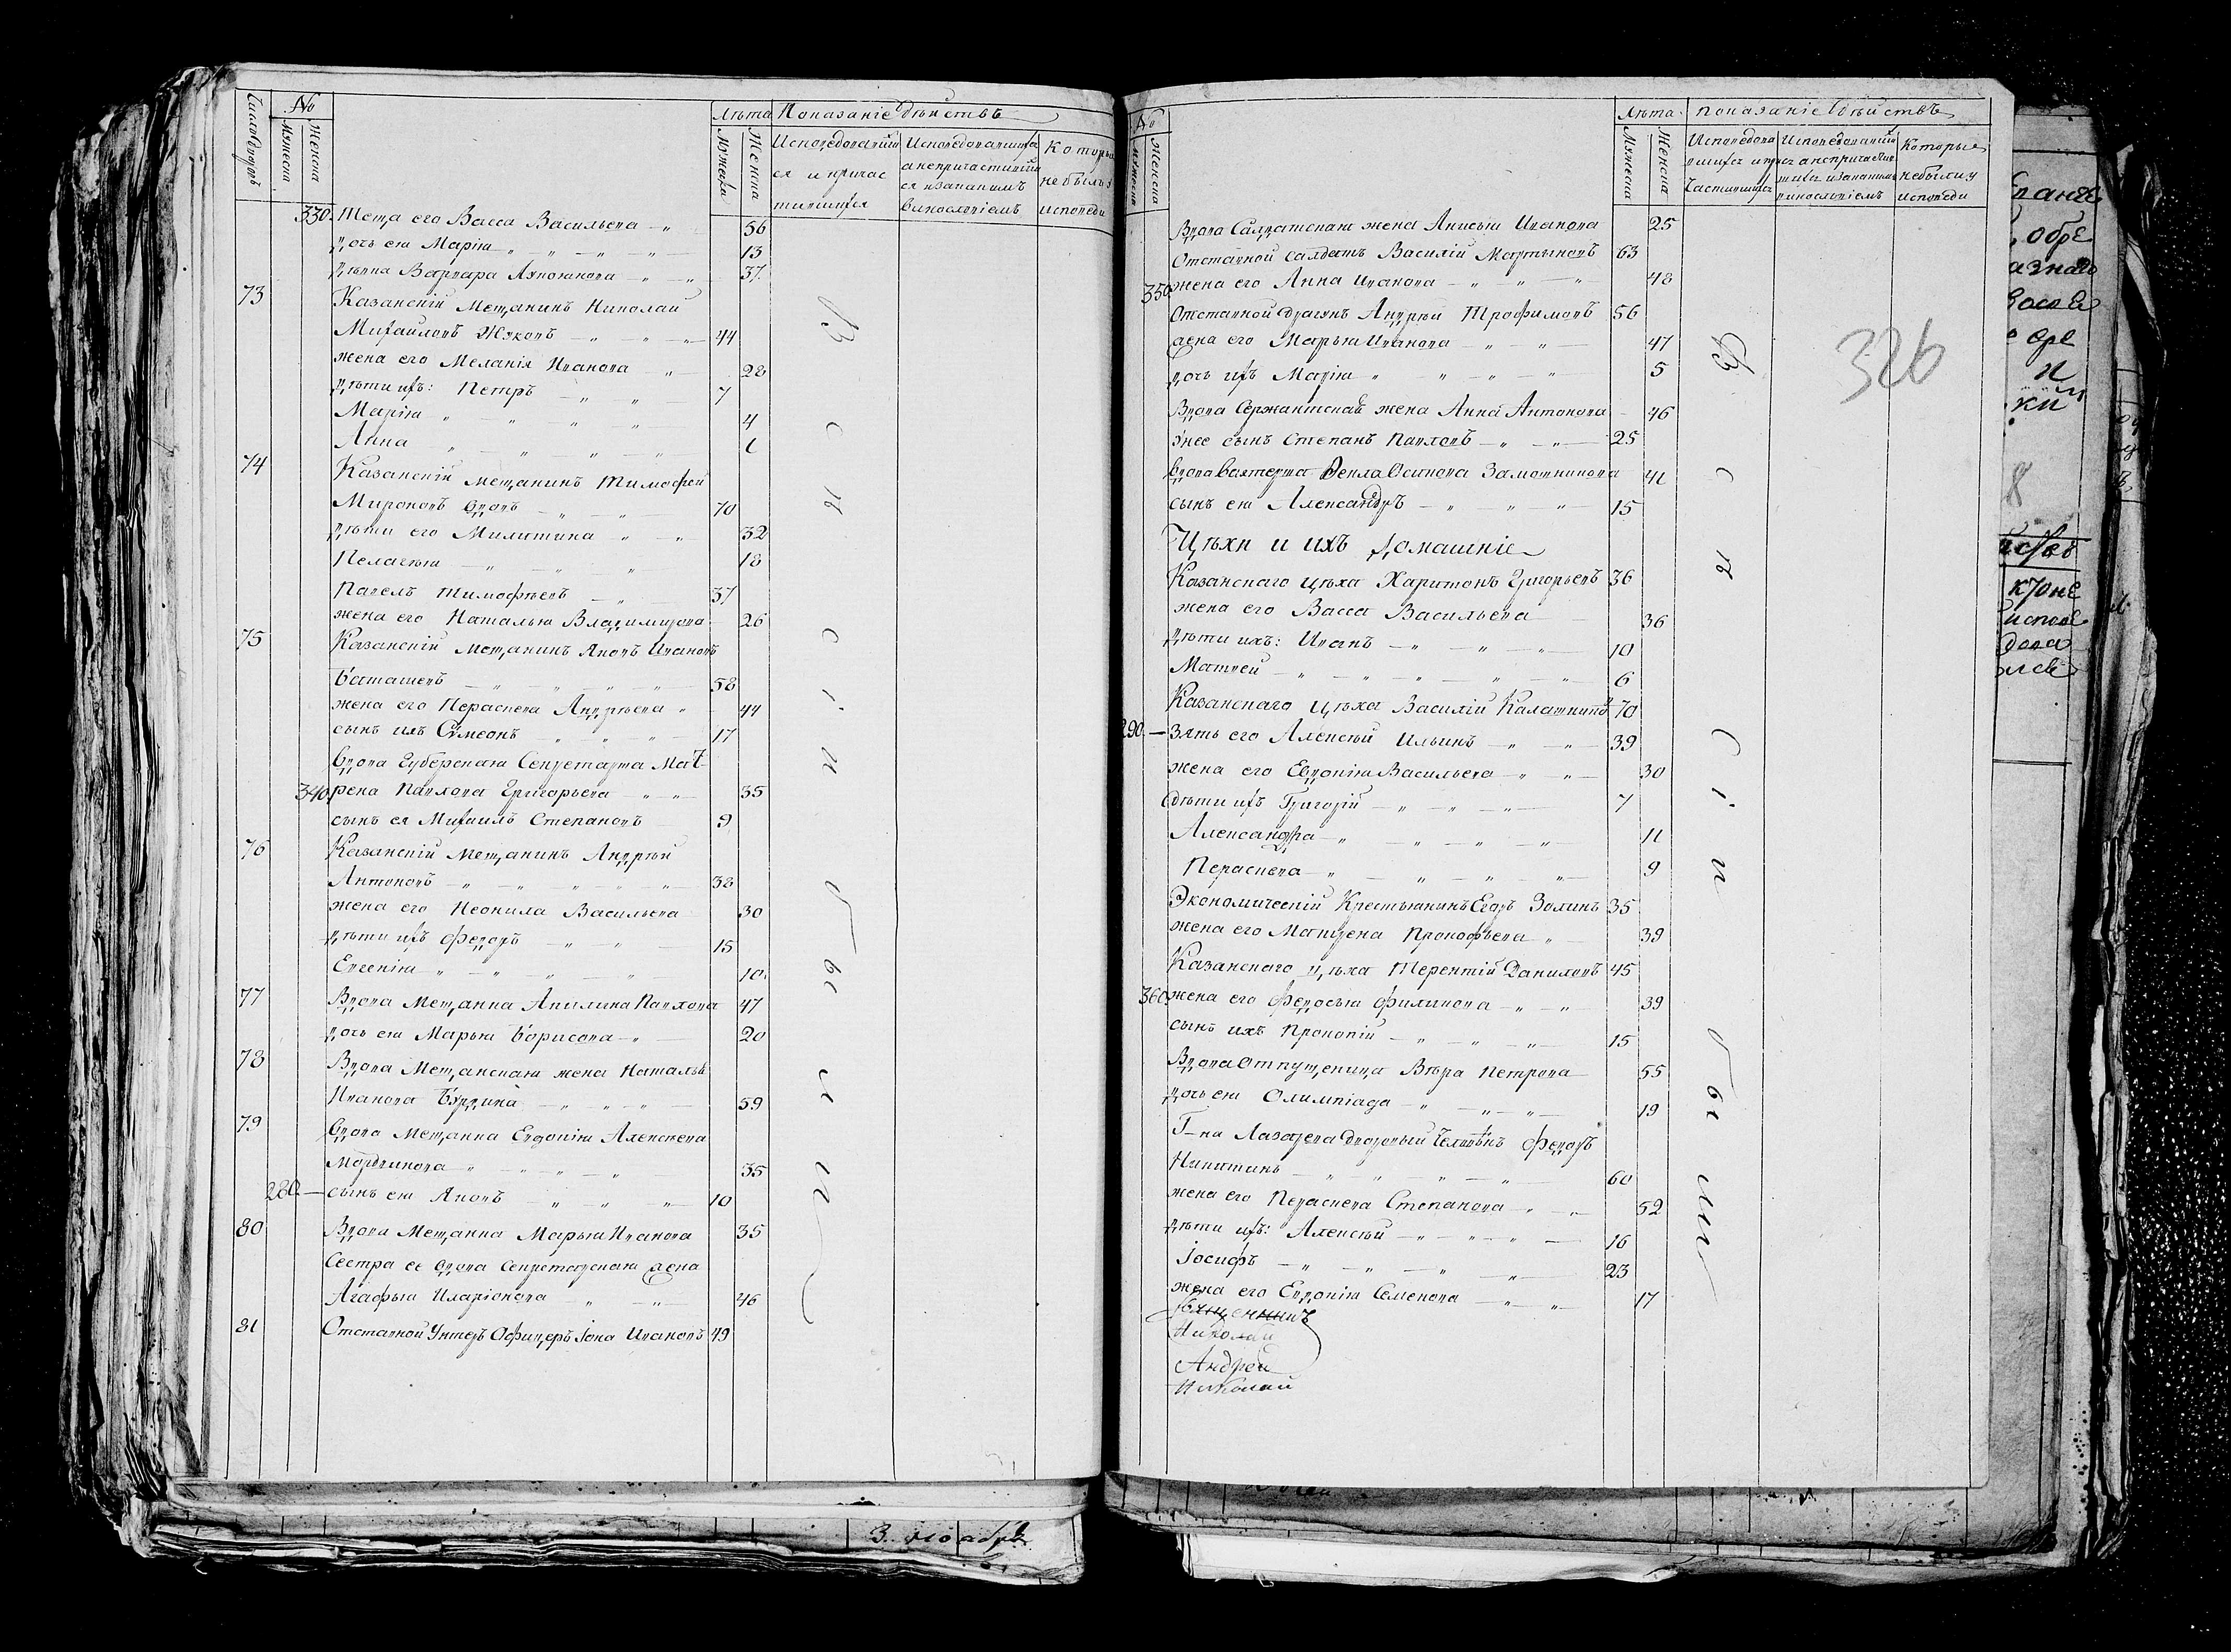 Число дворовъ
№
Мужеска
Женска
Лѣта
Мужска
Женска
Показаніе дѣйствъ
Исповѣдовавшіи
ся и причас
тившихся
Исповѣдовавшихся
а непричастивших
ся и за какимъ
винословіемъ
Которы
не были у
исповѣди
330 Теща его Васса Васильева 56
дочь ея Марія 13
дѣвка Варвара 37
73 Казанскій Мещанинъ Николай
Михайловъ Жуковъ 44
жена его Меланія Иванова 28
дѣти ихъ: Петръ 7
Марія 4
Анна
74 Казанскій Мещанинъ Тимофей
Мироновъ вдовъ 70
дѣти его Милитина 32
Пелагея 18
Павелъ Тимофѣевъ 37
жена его Наталья Владимирова 26
75 Казанскій мещанинъ Яковъ Ивановъ
Баташевъ 58
жена его Параскева Андрѣева 44
сынъ ихъ Сѵмеонъ 17
Вдова Губерскаго Секретаря Мат-
340 рена Павлова Григорьева 35
сынъ ея Михаилъ Степановъ 9
76 Казанскій Мещанинъ Андрѣй
Антоновъ 38
жена его Неонила Васильева 30
дѣти ихъ Федоръ 15
Евгенія 10
77 Вдова Мещанка Акилина Павлова 47
дочь ея Марья Борисова 20
78 Вдова Мещанская жена Наталья
Иванова Бурдина 59
79 Вдова Мещанка Евдокія Алексѣева
Мордвинова 35
280 сынъ ея Яковъ 10
80 Вдова Мещанка Марья Иванова 35
Сестра ее вдова Секретарская жена
Агафья Иларіонова 46
81 Отставной Унтеръ Офицеръ Іона Ивановъ 49
В с ѣ с і и б ы л и
№
Мужеска
Женска
Лѣта
Мужеска
Женска
показаніе дѣйствъ
Исповѣдова
вшихся и при
частившихся
Исповѣдовавшіи
ся а непричастив
шихся и за какимъ
винословіемъ
Которые
небыли у
исповѣди
Вдова Салдатская жена Анисья Иванова 25
Отставной салдатъ Василій Мартыновъ 63
350 жена его Анна Иванова 48
Отставной драгунъ Андрѣй Трофимовъ 56
жена его Марья Иванова 47
дочь ихъ Марія 5
Вдова Сержантская жена Анна Антонова 46
у нее сынъ Степанъ Павловъ 25
Вдова Вахтерша Фекла Осипова Замотникова 41
сынъ ея Александръ 15
Цѣхи и ихъ домашніе
Казанскаго цѣха Харитонъ Григорьевъ 36
жена его Васса Васильева 36
дѣти ихъ: Иванъ 10
Матвей 6
Казанскаго цѣха Василій Калашниковъ 70
290 Зять его Алексѣй Ильинъ 39
жена его Евдокія Васильева 30
дѣти ихъ Григорій 7
Александра 11
Параскева 9
Экономическій Крестьянинъ Егоръ Золинъ 35
жена его Матрена Прокофьева 39
Казанскаго цѣха Терентій Даниловъ 45
360 жена его Федосья Филипова 39
сынъ ихъ Прокопій 15
Вдова Отпущеница Вѣра Петрова 55
дочь ея Олимпіада 19
Г-на Лазарева Дворовый Человѣкъ Федоръ
Никитинъ 60
жена его Параскева Степанова 52
дѣти ихъ: Алексѣй 16
Іосифъ 23
жена его Евдокія Семенова 17
Священникъ
Николай
Андрей
Николай
В с ѣ с і и б ы л и
326
3. ноабря